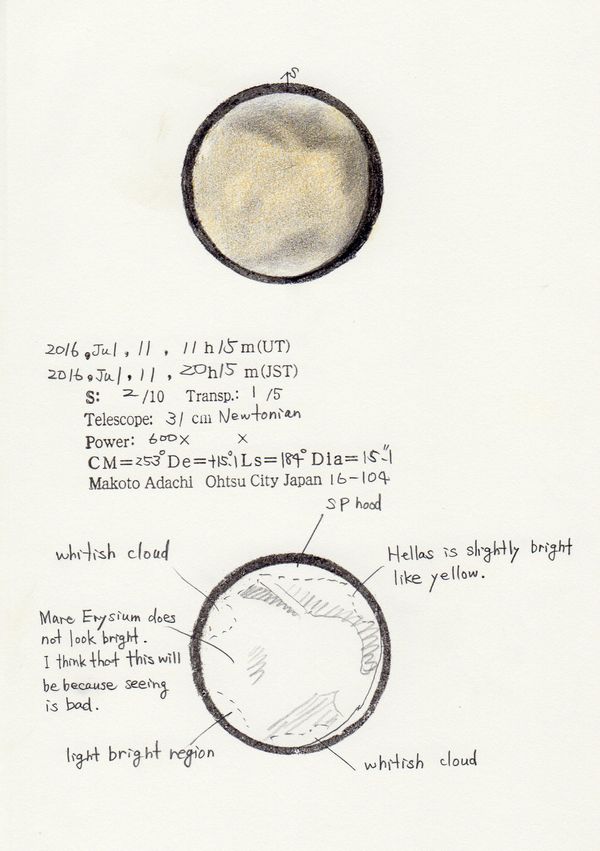 S
2016, Jul, 11, 11 h 15 m(UT)
2016, Jul, 11, 20 h 15 m(JST)
S: 2 /10 Transp.: 1 /5
Telescope: 31 cm Newtonian
Power: 600× ×
CM=253° De=+15.°1 Ls=184° Dia=15."1
Makoto Adachi Ohtsu City Japan 16-104
SP hood
whitish cloud
Hellas is slightly bright
like yellow.
Mare Erysium does
not look bright.
I think that this will
be because seeing
is bad.
light bright region
whitish cloud